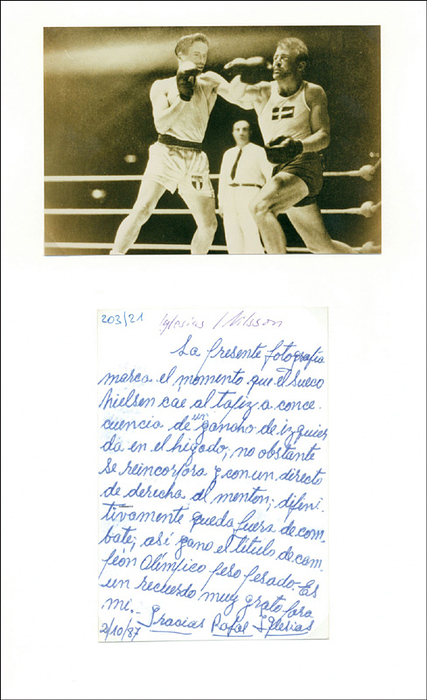 203/21 Iglesias / Nilsson
La presente fotografía
marca el momento que el sueco
Nielsen cae al tapiz a conce-
cuencia de un gancho de izquier
da en el higado, no obstante
se reincorpora y con un directo
de derecha al menton; difini-
tivamente queda fuera de com-
bate; asi gano el titulo de cam
peon Olímpico peso pesado. Es
un recuerdo muy grato para
mi.
2/10/87 Gracias Rafael Iglesias